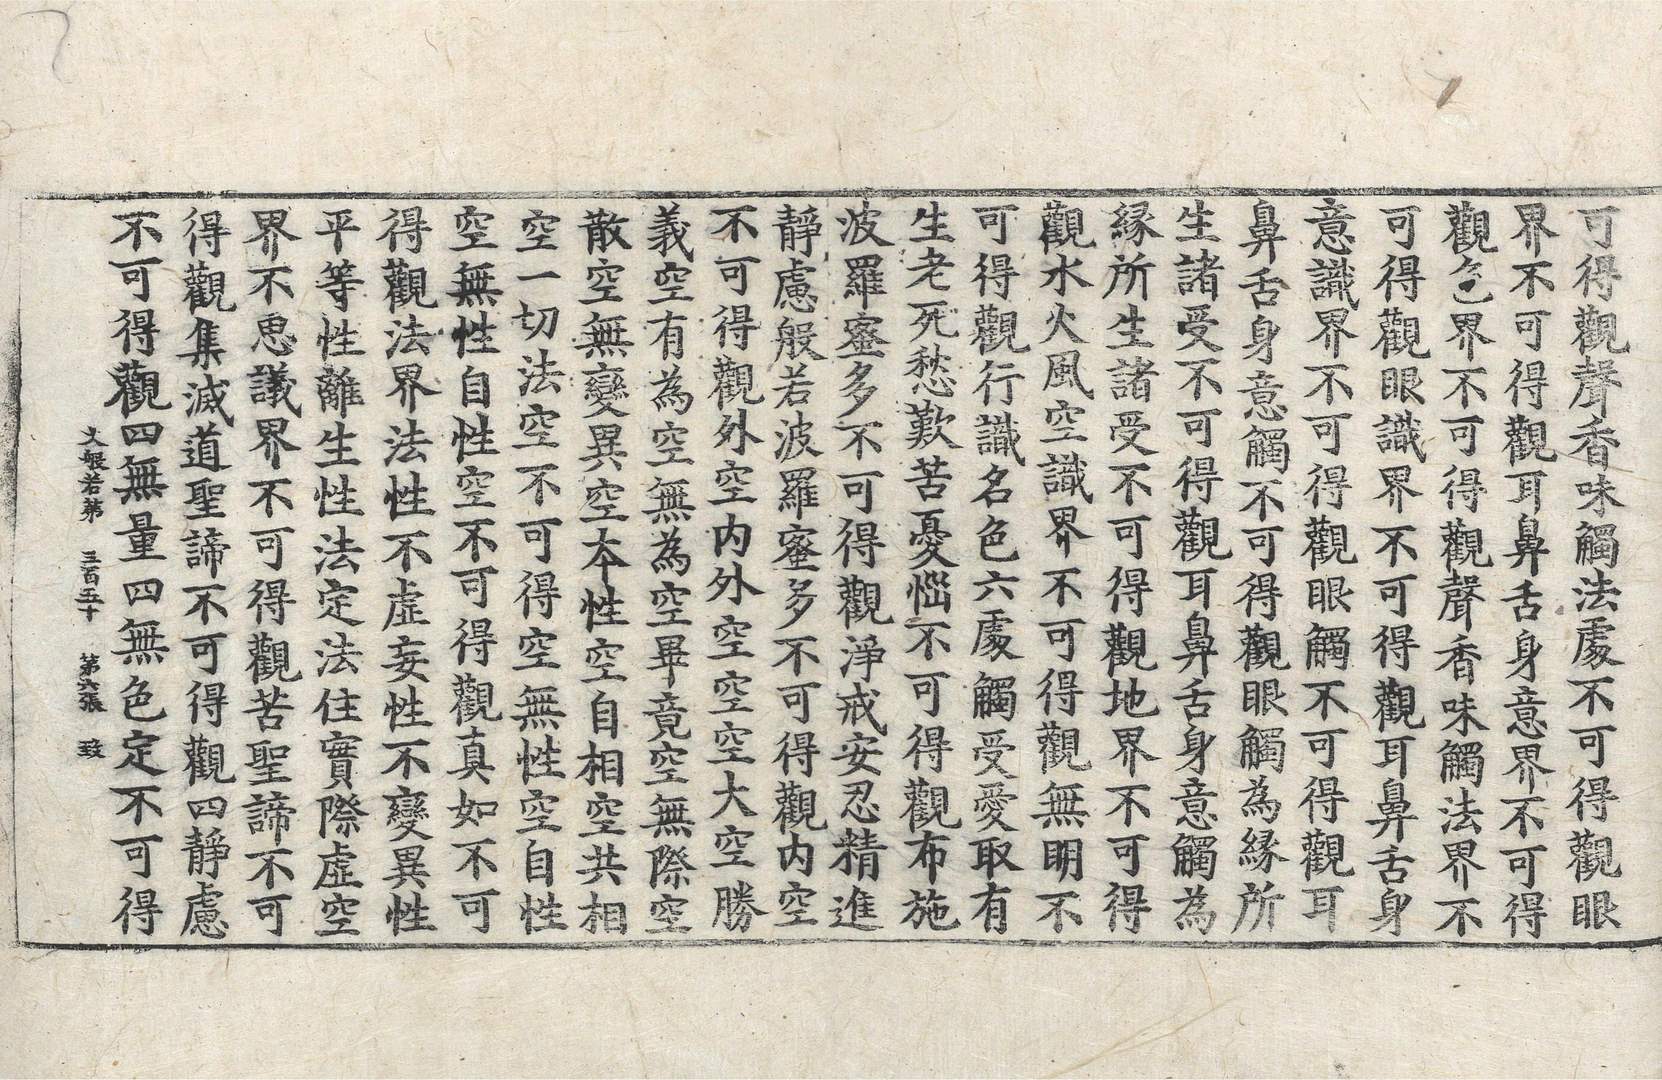 可得觀聲香味觸法處不可得觀眼
界不可得觀耳鼻舌身意界不可得
觀色界不可得觀聲香味觸法界不
可得觀眼識界不可得觀耳鼻舌身
意識界不可得觀眼觸不可得觀耳
鼻舌身意觸不可得觀眼觸為緣所
生諸受不可得觀耳鼻舌身意觸為
緣所生諸受不可得觀地界不可得
觀水火風空識界不可得觀無明不
可得觀行識名色六處觸受愛取有
生老死愁歎苦憂惱不可得觀布施
波羅蜜多不可得觀淨戒安忍精進
靜慮般若波羅蜜多不可得觀內空
不可得觀外空內外空空空大空勝
義空有為空無為空畢竟空無際空
散空無變異空本性空自相空共相
空一切法空不可得空無性空自性
空無性自性空不可得觀真如不可
得觀法界法性不虛妄性不變異性
平等性離生性法定法住實際虛空
界不思議界不可得觀苦聖諦不可
得觀集滅道聖諦不可得觀四靜慮
不可得觀四無量四無色定不可得
大般若第 三百五十 第六張 致